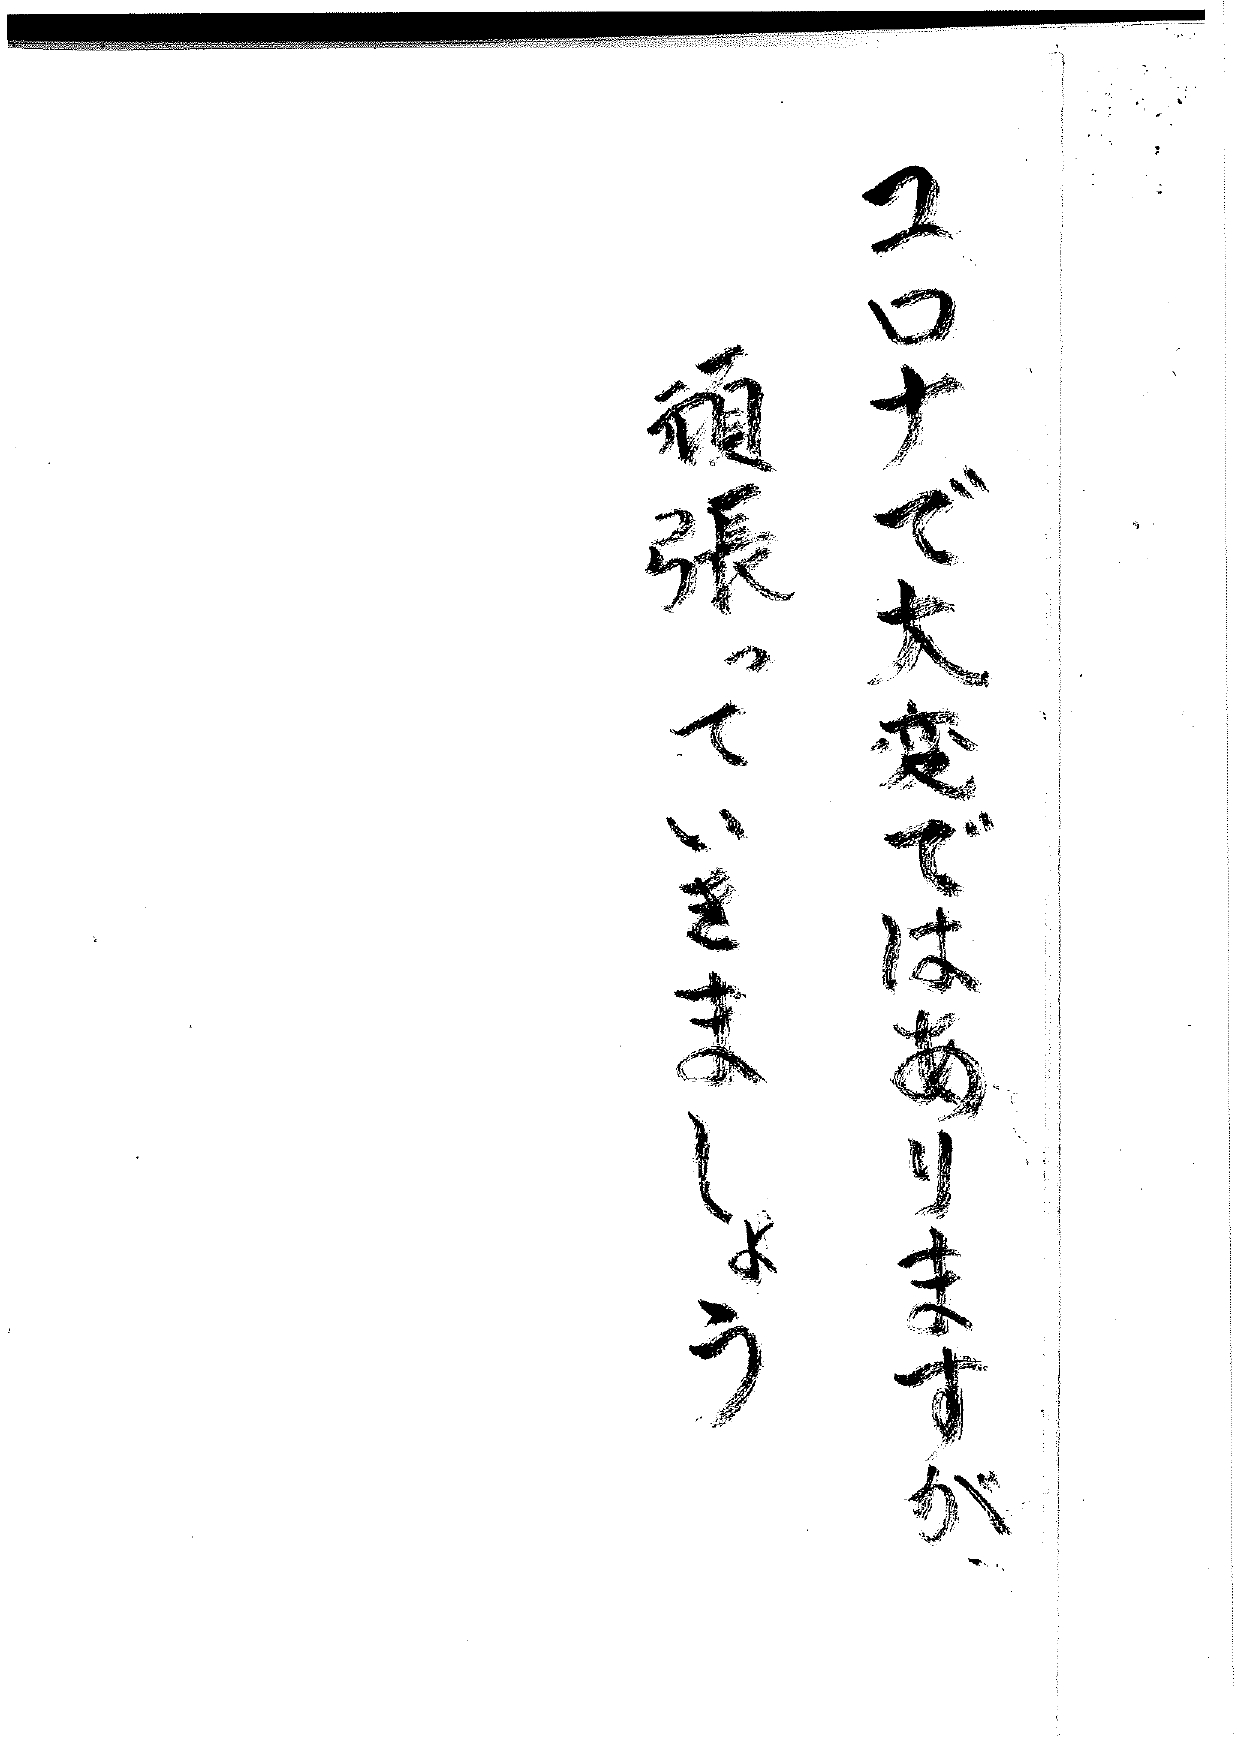 コロナで大変ではありますが、
頑張っていきましょう